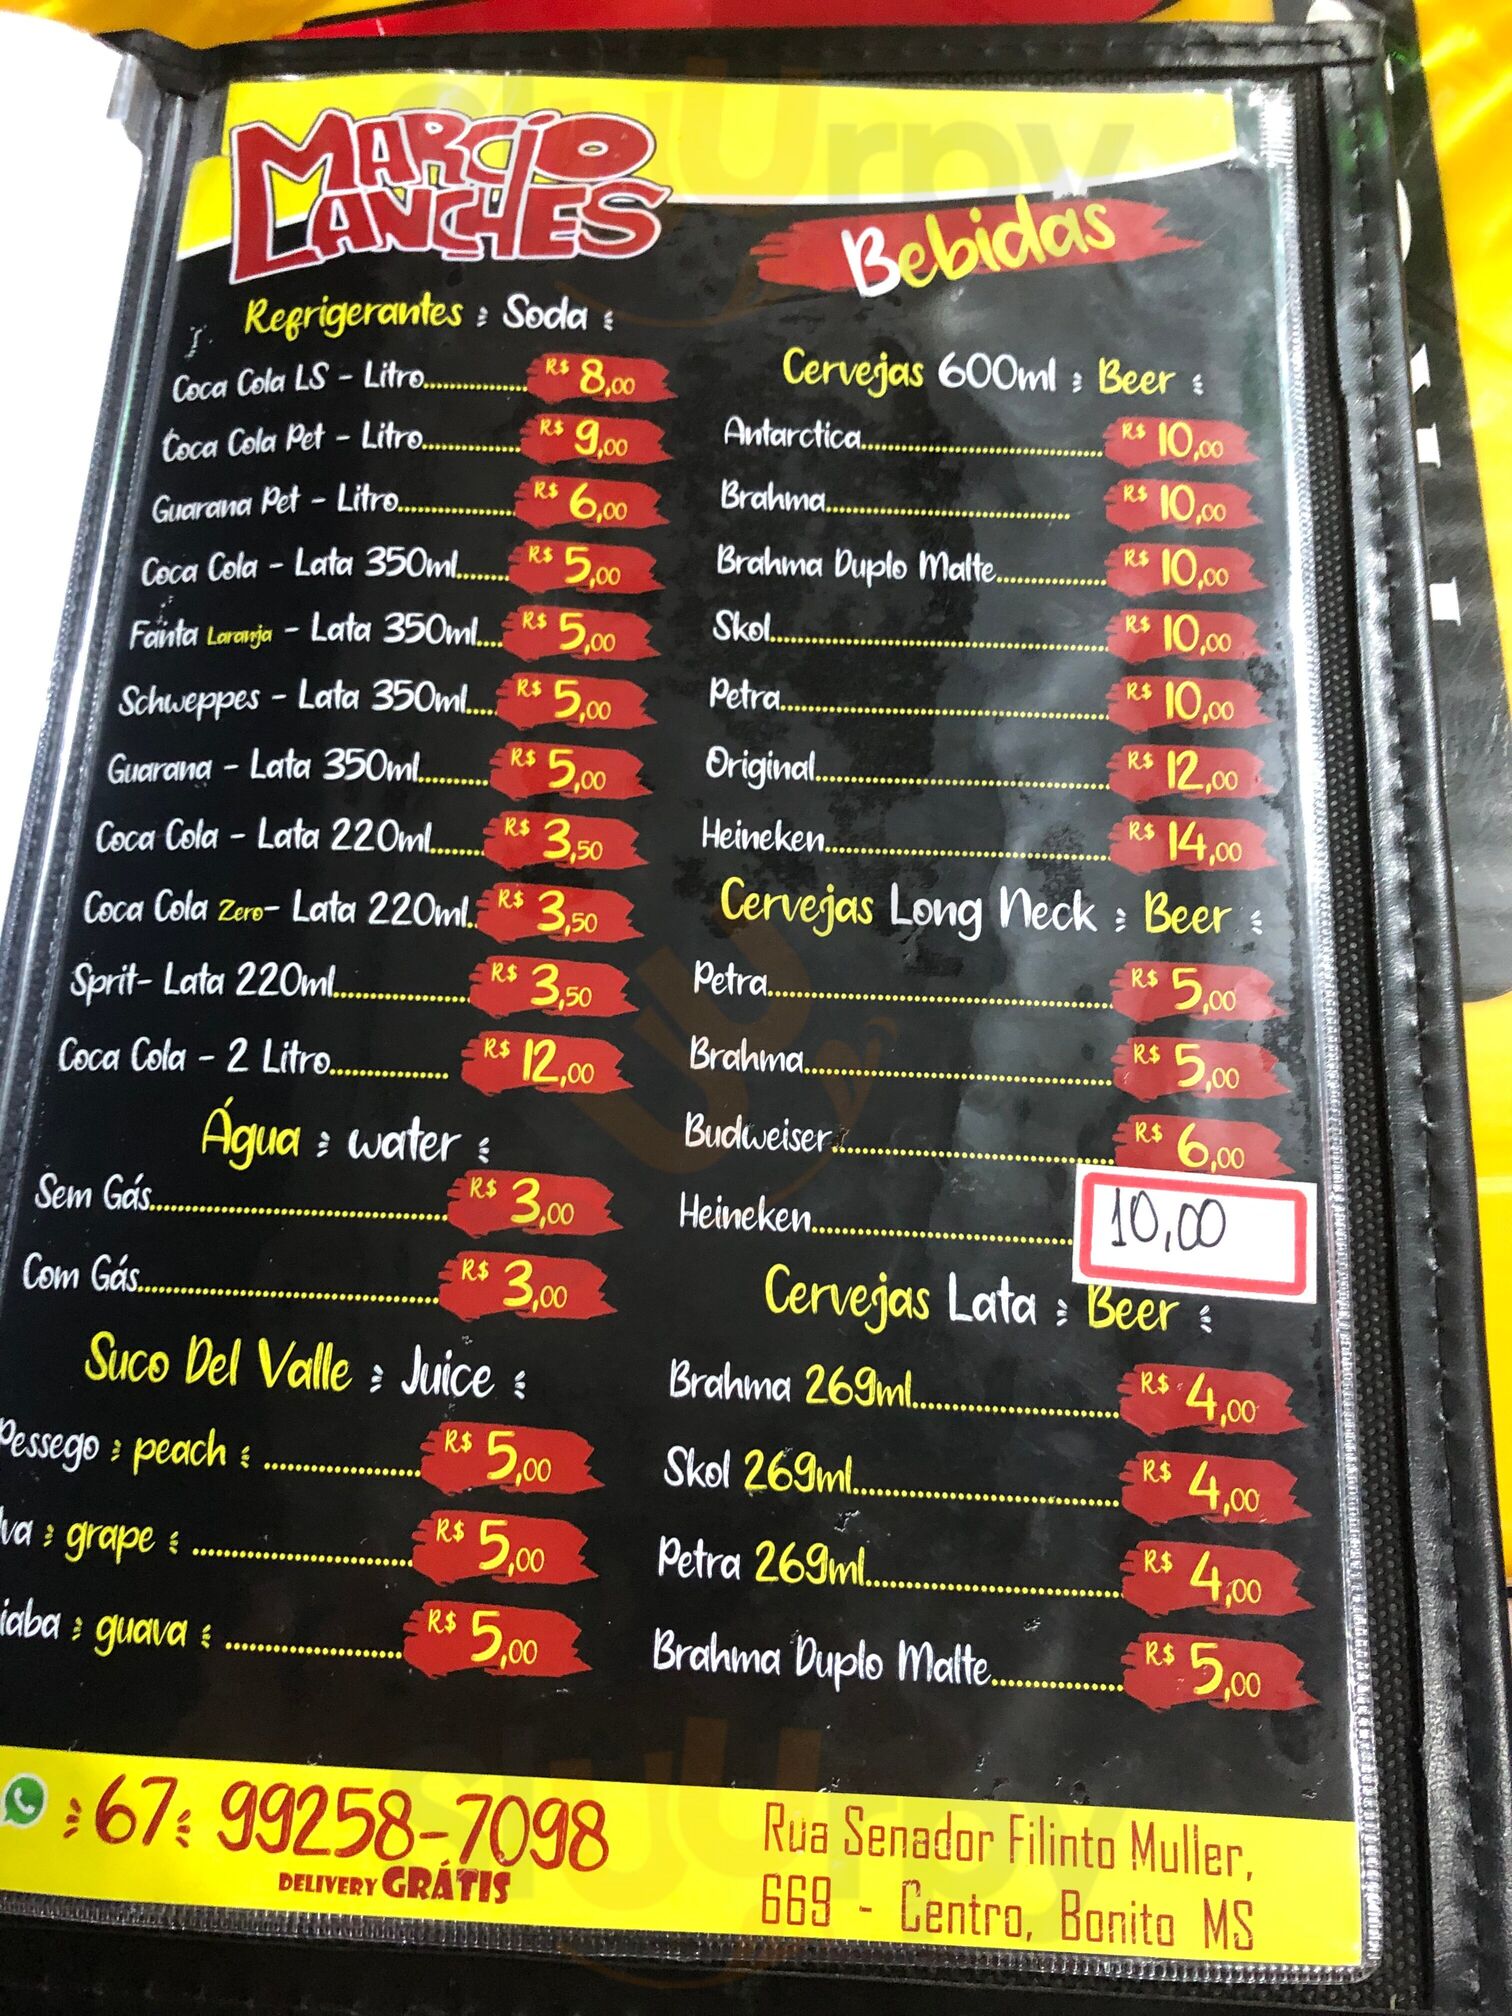 MARCIO
LANCHES
Bebidas
Refrigerantes Soda
Coca Cola LS - Litro R$ 8,00
Coca Cola Pet - Litro R$ 9,00
Guarana Pet - Litro R$ 6,00
Coca Cola - Lata 350ml R$ 5,00
Fanta Laranja - Lata 350ml R$ 5,00
Schweppes - Lata 350ml R$ 5,00
Guarana - Lata 350ml R$ 5,00
Coca Cola - Lata 220ml R$ 3,50
Coca Cola Zero - Lata 220ml R$ 3,50
Sprit- Lata 220ml R$ 3,50
Coca Cola - 2 Litro R$ 12,00
Água water
Sem Gás R$ 3,00
Com Gás R$ 3,00
Suco Del Valle Juice
Pessego peach R$ 5,00
va grape R$ 5,00
iaba guava R$ 5,00
Cervejas 600ml Beer
Antarctica R$ 10,00
Brahma R$ 10,00
Brahma Duplo Malte R$ 10,00
Skol R$ 10,00
Petra R$ 10,00
Original R$ 12,00
Heineken R$ 14,00
Cervejas Long Neck Beer
Petra R$ 5,00
Brahma R$ 5,00
Budweiser R$ 6,00
Heineken 10,00
Cervejas Lata Beer
Brahma 269ml R$ 4,00
Skol 269ml R$ 4,00
Petra 269ml R$ 4,00
Brahma Duplo Malte R$ 5,00
67 99258-7098
DELIVERY GRÁTIS
Rua Senador Filinto Muller,
669 - Centro, Bonito MS